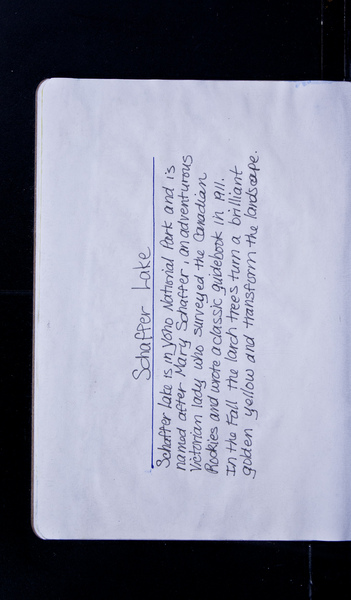 Schaffer Lake
Schaffer Lake is in Yoho National Park and is
named after Mary Schaffer, an adventurous
Victorian lady who surveyed the Canadian
Rockies and wrote a classic guidebook in 1911.
In the Fall the larch trees turn a brilliant
golden yellow and transform the landscape.